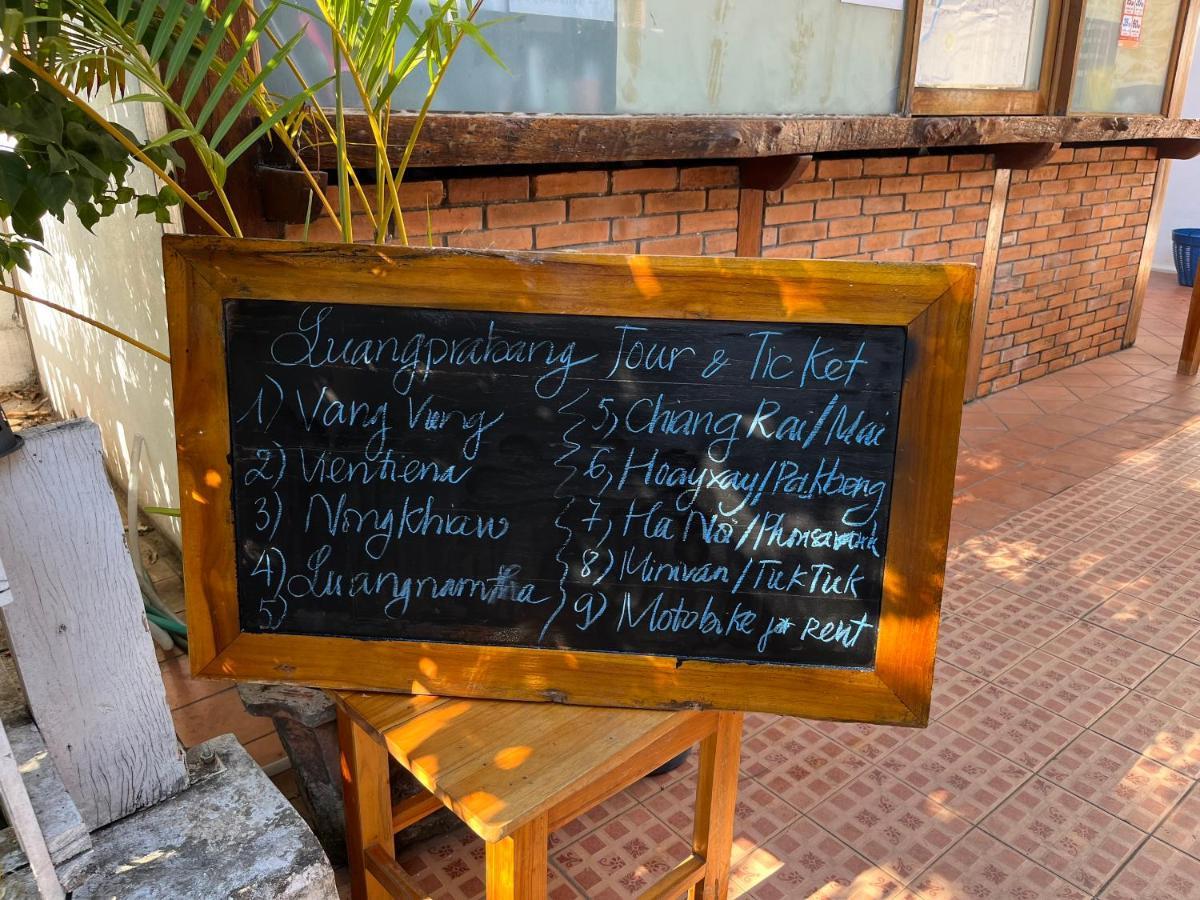 Luangprabang Tour & Ticket
1) Vang Vieng
2) Vientiena
3) Nongkhiaw
4) Luangnamtha
5)
5, Chiang Rai/Mai
6, Hoayxay/Pakbeng
7, Ha Nôi/Phonsavanh
8) Minivan/TukTuk
9) Motobike for rent